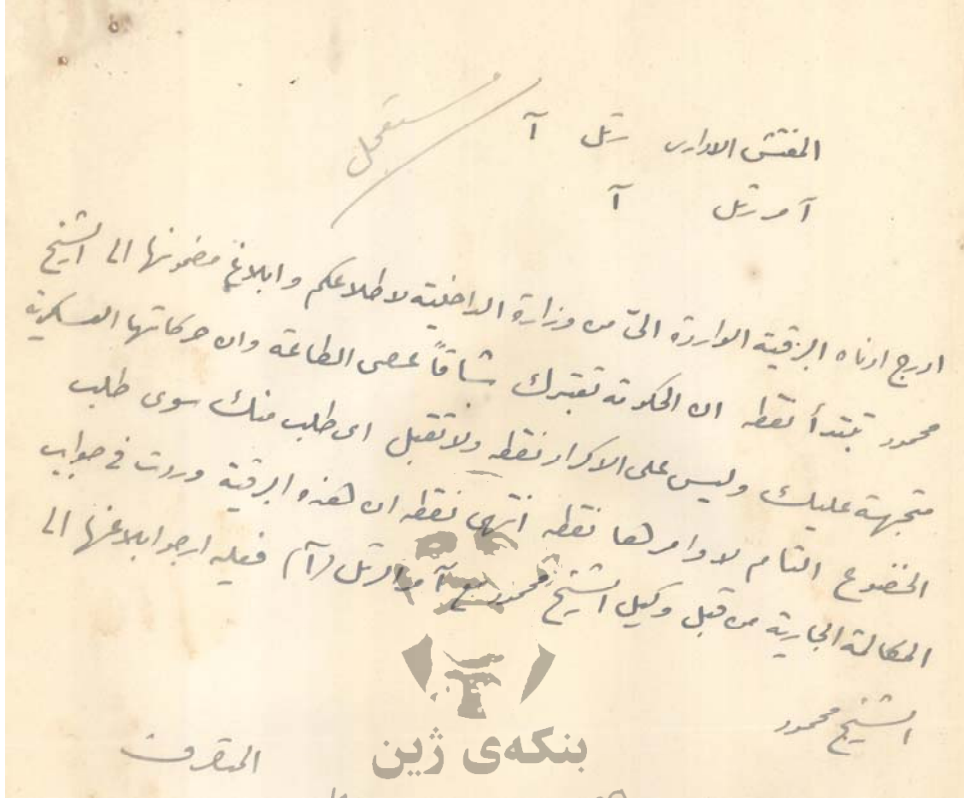 مستعجل
المفتش الاداري رتل آ
آمر رتل آ
ادرج ادناه البرقية الواردة اليّ من وزارة الداخلية لاطلاعكم وابلاغ مضمونها الى الشيخ
محمود تبتدأ نقطه ان الحكومة تعتبرك شاقاً عصى الطاعة وان حركاتها العسكرية
متجهة عليك وليس على الاكراد نقطه ولا تقبل اي طلب منك سوى طلب
الخضوع التام لاوامرها نقطه انتهى نقطه ان هذه البرقية وردت في جواب
المكالمة الجارية من قبل وكيل الشيخ محمود مع آمر الرتل (آ) فعليه ارجو ابلاغها الى
الشيخ محمود
المتصرف
بنکەی ژین